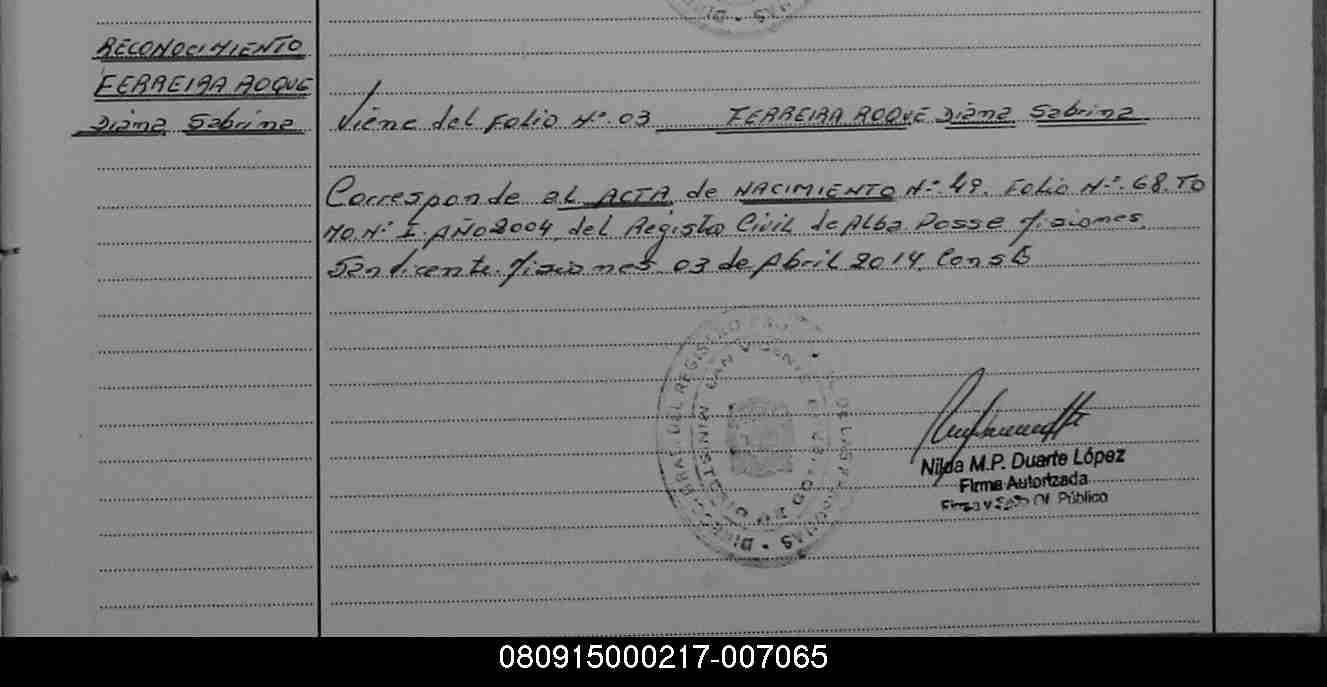 RECONOCIMIENTO
FERREIRA ROQUE
Diana Sabrina
Viene del Folio Nº 03 FERREIRA ROQUE Diana Sabrina
Corresponde al ACTA de NACIMIENTO Nº 49. Folio Nº 68. TO
MO. Nº I. AÑO 2004, del Registro Civil de Alba Posse Misiones.
San Vicente. Misiones 03 de Abril 2014. Const
Nilda M.P. Duarte López
Firma Autorizada
Firma y Sello Of. Público
080915000217-007065